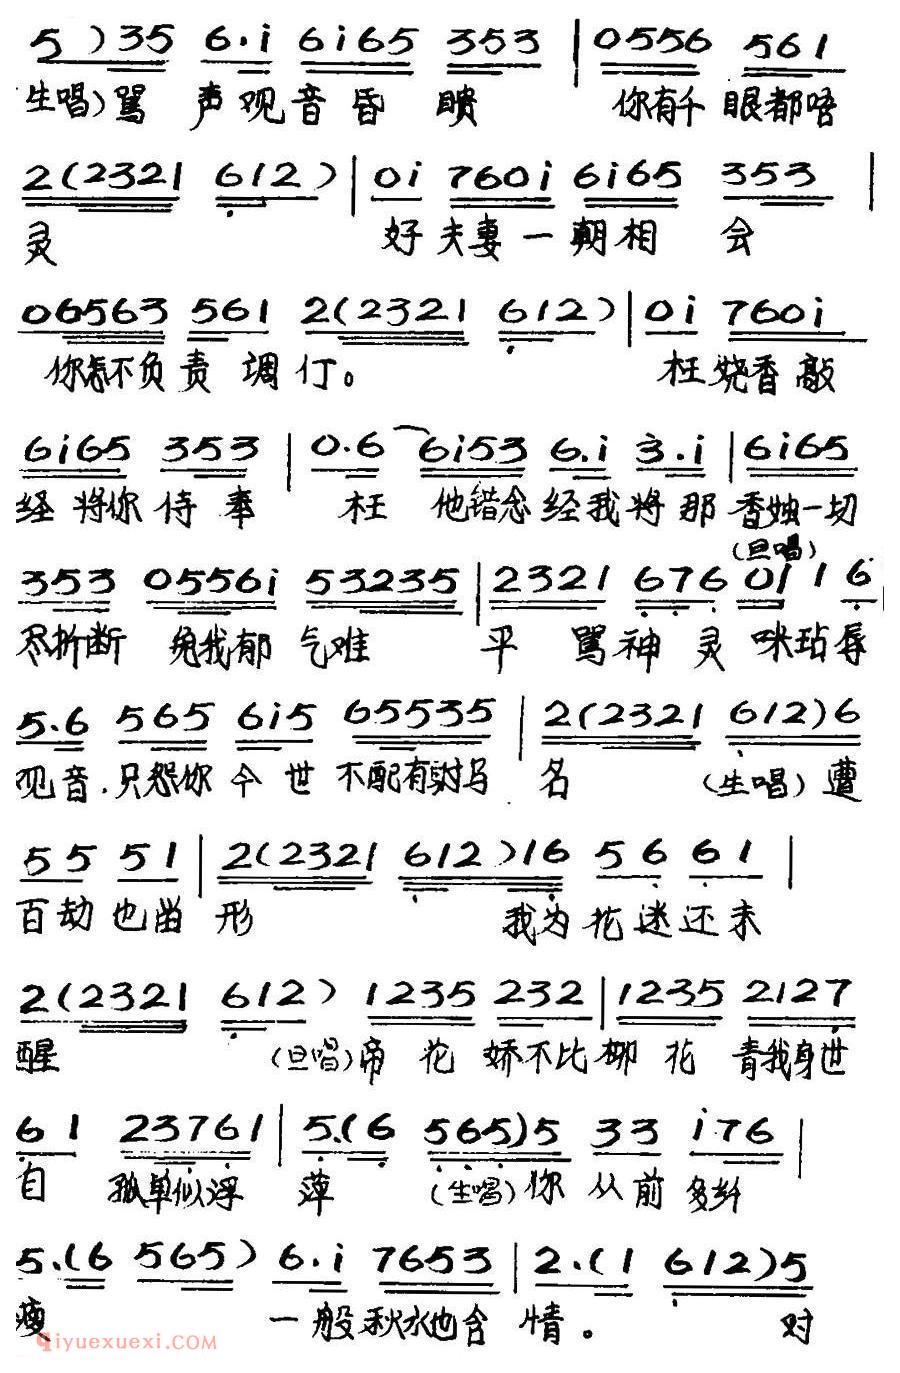 5 ) 3 5 6 . i 6 i 6 5 3 5 3 | 0 5 5 6 5 6 1
生唱）骂 声 观 音 昏 聩 你有千 眼都唔
2 ( 2 3 2 1 6 1 2 ) | 0 i 7 6 0 i 6 i 6 5 3 5 3 |
灵 好 夫妻一朝相 会
0 6 5 6 3 5 6 1 2 ( 2 3 2 1 6 1 2 ) | 0 i 7 6 0 i
你怎不负责 调仃。 枉 烧香敲
6 i 6 5 3 5 3 | 0 . 6 6 i 5 3 6 . i 3 . i | 6 i 6 5
经 将你 侍 奉 枉 他错念 经我将那 香烛一切
(旦唱)
3 5 3 0 5 5 6 i 5 3 2 3 5 | 2 3 2 1 6 7 6 0 1 1 6
尽折断 免我郁 气难 平 骂神灵 咪玷辱
5 . 6 5 6 5 6 i 5 6 5 5 3 5 | 2 ( 2 3 2 1 6 1 2 ) 6
观音．只怨你 今 世 不配有 名 （生唱）遭
5 5 5 1 | 2 ( 2 3 2 1 6 1 2 ) 1 6 5 6 6 1 |
百劫也 形 我为 花迷还未
2 ( 2 3 2 1 6 1 2 ) 1 2 3 5 2 3 2 | 1 2 3 5 2 1 2 7
醒 （旦唱）帝 花 娇不比柳 花 我身世
6 1 2 3 7 6 1 | 5 . ( 6 5 6 5 ) 5 3 3 i . 7 6 |
自 孤单似浮 萍 （生唱）你 从 前
5 . ( 6 5 6 5 ) 6 . i 7 6 5 3 | 2 . ( 1 6 1 2 ) 5
一 般 秋水也含 情。 对
Qiyuexuexi.COM